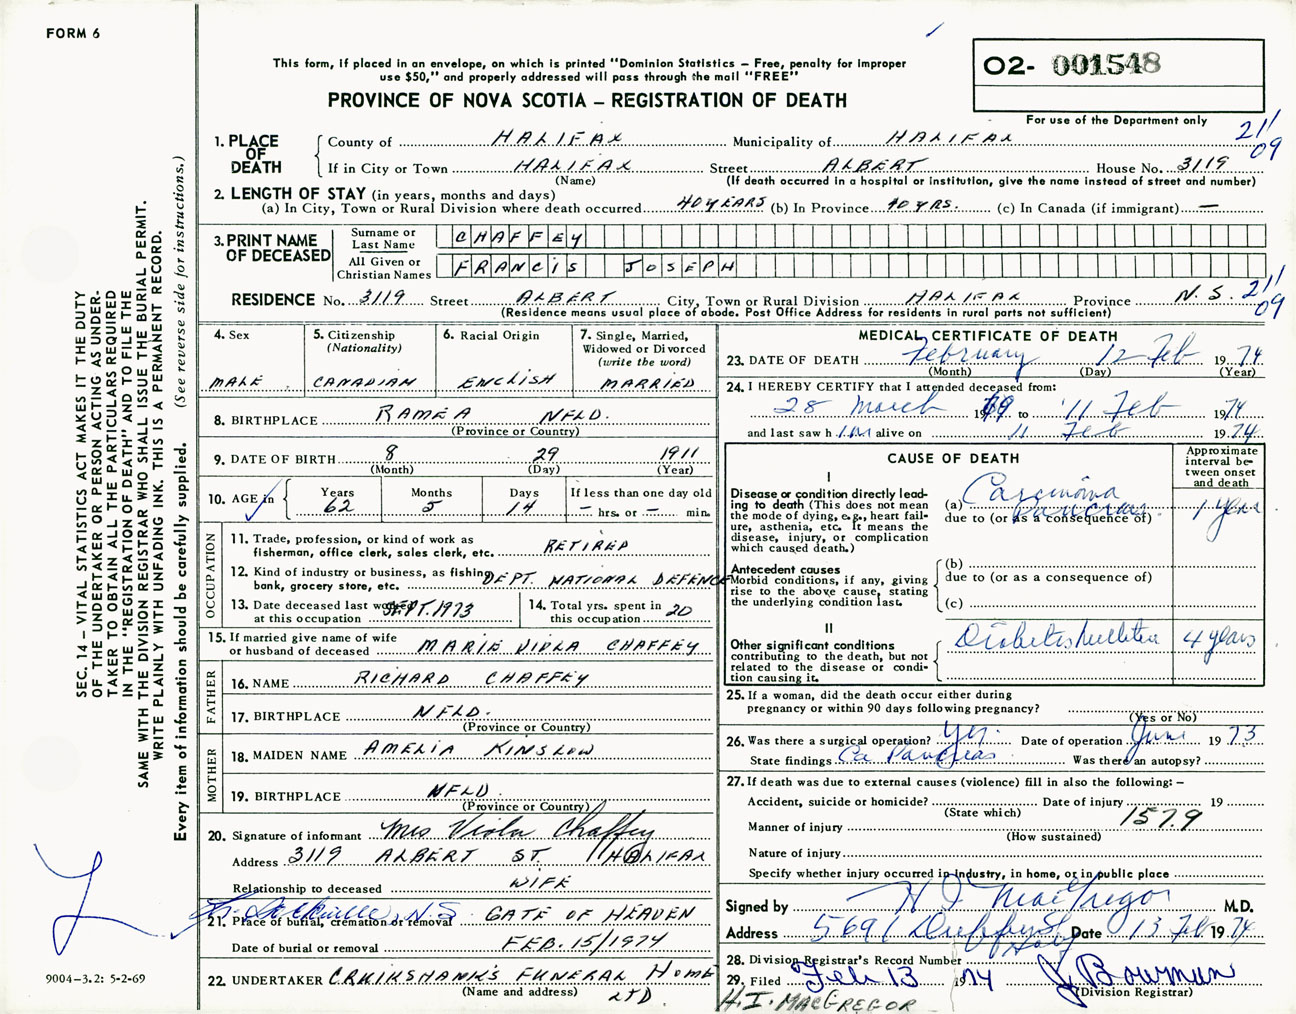 FORM 6
This form, if placed in an envelope, on which is printed "Dominion Statistics – Free, penalty for improper
use $50," and properly addressed will pass through the mail "FREE"
PROVINCE OF NOVA SCOTIA – REGISTRATION OF DEATH
O2- 001548
For use of the Department only
21/
09
1. PLACE OF DEATH
County of HALIFAX Municipality of HALIFAX
If in City or Town HALIFAX Street ALBERT House No. 3119
(Name) (If death occurred in a hospital or institution, give the name instead of street and number)
2. LENGTH OF STAY (in years, months and days)
(a) In City, Town or Rural Division where death occurred 40 YEARS (b) In Province 40 YRS. (c) In Canada (if immigrant) —
3. PRINT NAME OF DECEASED
Surname or Last Name CHAFFEY
All Given or Christian Names FRANCIS JOSEPH
RESIDENCE No. 3119 Street ALBERT City, Town or Rural Division HALIFAX Province N.S. 21/
09
(Residence means usual place of abode. Post Office Address for residents in rural parts not sufficient)
4. Sex
MALE
5. Citizenship
(Nationality)
CANADIAN
6. Racial Origin
ENGLISH
7. Single, Married,
Widowed or Divorced
(write the word)
MARRIED
8. BIRTHPLACE RAMEA NFLD.
(Province or Country)
9. DATE OF BIRTH 8 29 1911
(Month) (Day) (Year)
10. AGE in
Years 62
Months 5
Days 14
If less than one day old
– hrs. or – min.
OCCUPATION
11. Trade, profession, or kind of work as
fisherman, office clerk, sales clerk, etc. RETIRED
12. Kind of industry or business, as fishing,
bank, grocery store, etc. DEPT. NATIONAL DEFENCE
13. Date deceased last worked
at this occupation SEPT. 1973
14. Total yrs. spent in
this occupation 20
15. If married give name of wife
or husband of deceased MARIE VIOLA CHAFFEY
FATHER
16. NAME RICHARD CHAFFEY
17. BIRTHPLACE NFLD.
(Province or Country)
MOTHER
18. MAIDEN NAME AMELIA KINSLOW
19. BIRTHPLACE NFLD.
(Province or Country)
20. Signature of informant Mrs Viola Chaffey
Address 3119 ALBERT ST. HALIFAX
Relationship to deceased WIFE
Lr. Sackville, N.S.
21. Place of burial, cremation or removal GATE OF HEAVEN
Date of burial or removal FEB. 15/1974
22. UNDERTAKER CRUIKSHANK'S FUNERAL HOME
(Name and address) LTD.
MEDICAL CERTIFICATE OF DEATH
23. DATE OF DEATH February 12 Feb 1974
(Month) (Day) (Year)
24. I HEREBY CERTIFY that I attended deceased from:
28 March 1969 to 11 Feb 1974
and last saw him alive on 11 Feb 1974
CAUSE OF DEATH
Approximate
interval be-
tween onset
and death
I
Disease or condition directly lead-
ing to death (This does not mean
the mode of dying, e.g., heart fail-
ure, asthenia, etc. It means the
disease, injury, or complication
which caused death.)
(a) Carcinoma
Pancreas 1 year
due to (or as a consequence of)
Antecedent causes
Morbid conditions, if any, giving
rise to the above cause, stating
the underlying condition last.
(b)
due to (or as a consequence of)
(c)
II
Other significant conditions
contributing to the death, but not
related to the disease or condi-
tion causing it.
Diabetes Mellitus 4 years
25. If a woman, did the death occur either during
pregnancy or within 90 days following pregnancy?
(Yes or No)
26. Was there a surgical operation? Yes. Date of operation June 1973
State findings Ca Pancreas Was there an autopsy?
27. If death was due to external causes (violence) fill in also the following: –
Accident, suicide or homicide? Date of injury 19
(State which) 157.9
Manner of injury
(How sustained)
Nature of injury
Specify whether injury occurred in industry, in home, or in public place
Signed by H I MacGregor M.D.
Address 5691 Duffus St Date 13 Feb 1974
28. Division Registrar's Record Number
29. Filed Feb 13 1974 J Bowman
(Division Registrar)
H. I. MACGREGOR
SEC. 14 – VITAL STATISTICS ACT MAKES IT THE DUTY
OF THE UNDERTAKER OR PERSON ACTING AS UNDER-
TAKER TO OBTAIN ALL THE PARTICULARS REQUIRED
IN THE "REGISTRATION OF DEATH" AND TO FILE THE
SAME WITH THE DIVISION REGISTRAR WHO SHALL ISSUE THE BURIAL PERMIT.
WRITE PLAINLY WITH UNFADING INK. THIS IS A PERMANENT RECORD.
Every item of information should be carefully supplied. (See reverse side for instructions.)
9004–3.2: 5-2-69